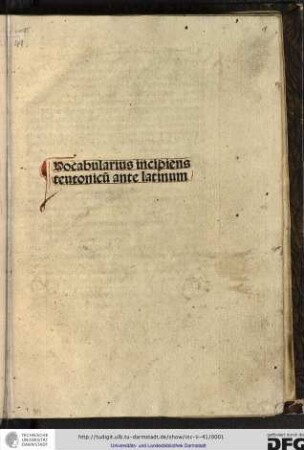 Vocabularius incipiens
teutonicū ante latinum
TECHNISCHE
UNIVERSITÄT
DARMSTADT
http://tudigit.ulb.tu-darmstadt.de/show/inc-ii-41/0001
Universitäts- und Landesbibliothek Darmstadt
gefördert durch die
DFG